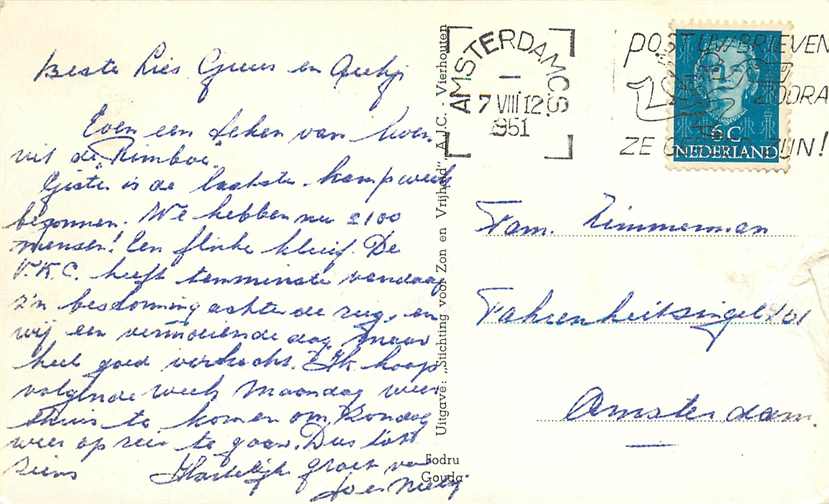 Beste Lies Guus en
Even een teken van leven
uit de "Rimboe".
Gister is de laatste kampweek
begonnen. We hebben nu 2100
mensen! Een flinke kluif. De
V.K.C. heeft tenminste vandaag
z'n beslommering achter de rug, en
wij een vermoeiende dag. Maar
heel goed verkocht. Ik hoop
volgende week Maandag weer
thuis te komen om Zondag
weer op reis te gaan. Dus tot
ziens Hartelijke groeten van
Uitgave: „Stichting voor Zon en Vrijheid", A.J.C. - Vierhouten
Fodru
Gouda
AMSTERDAM C.S.
7 VIII 12
1951
POST UW BRIEVEN
ZE
6 C
NEDERLAND
Fam. Zimmerman
Fahrenheitsingel 101
Amsterdam.